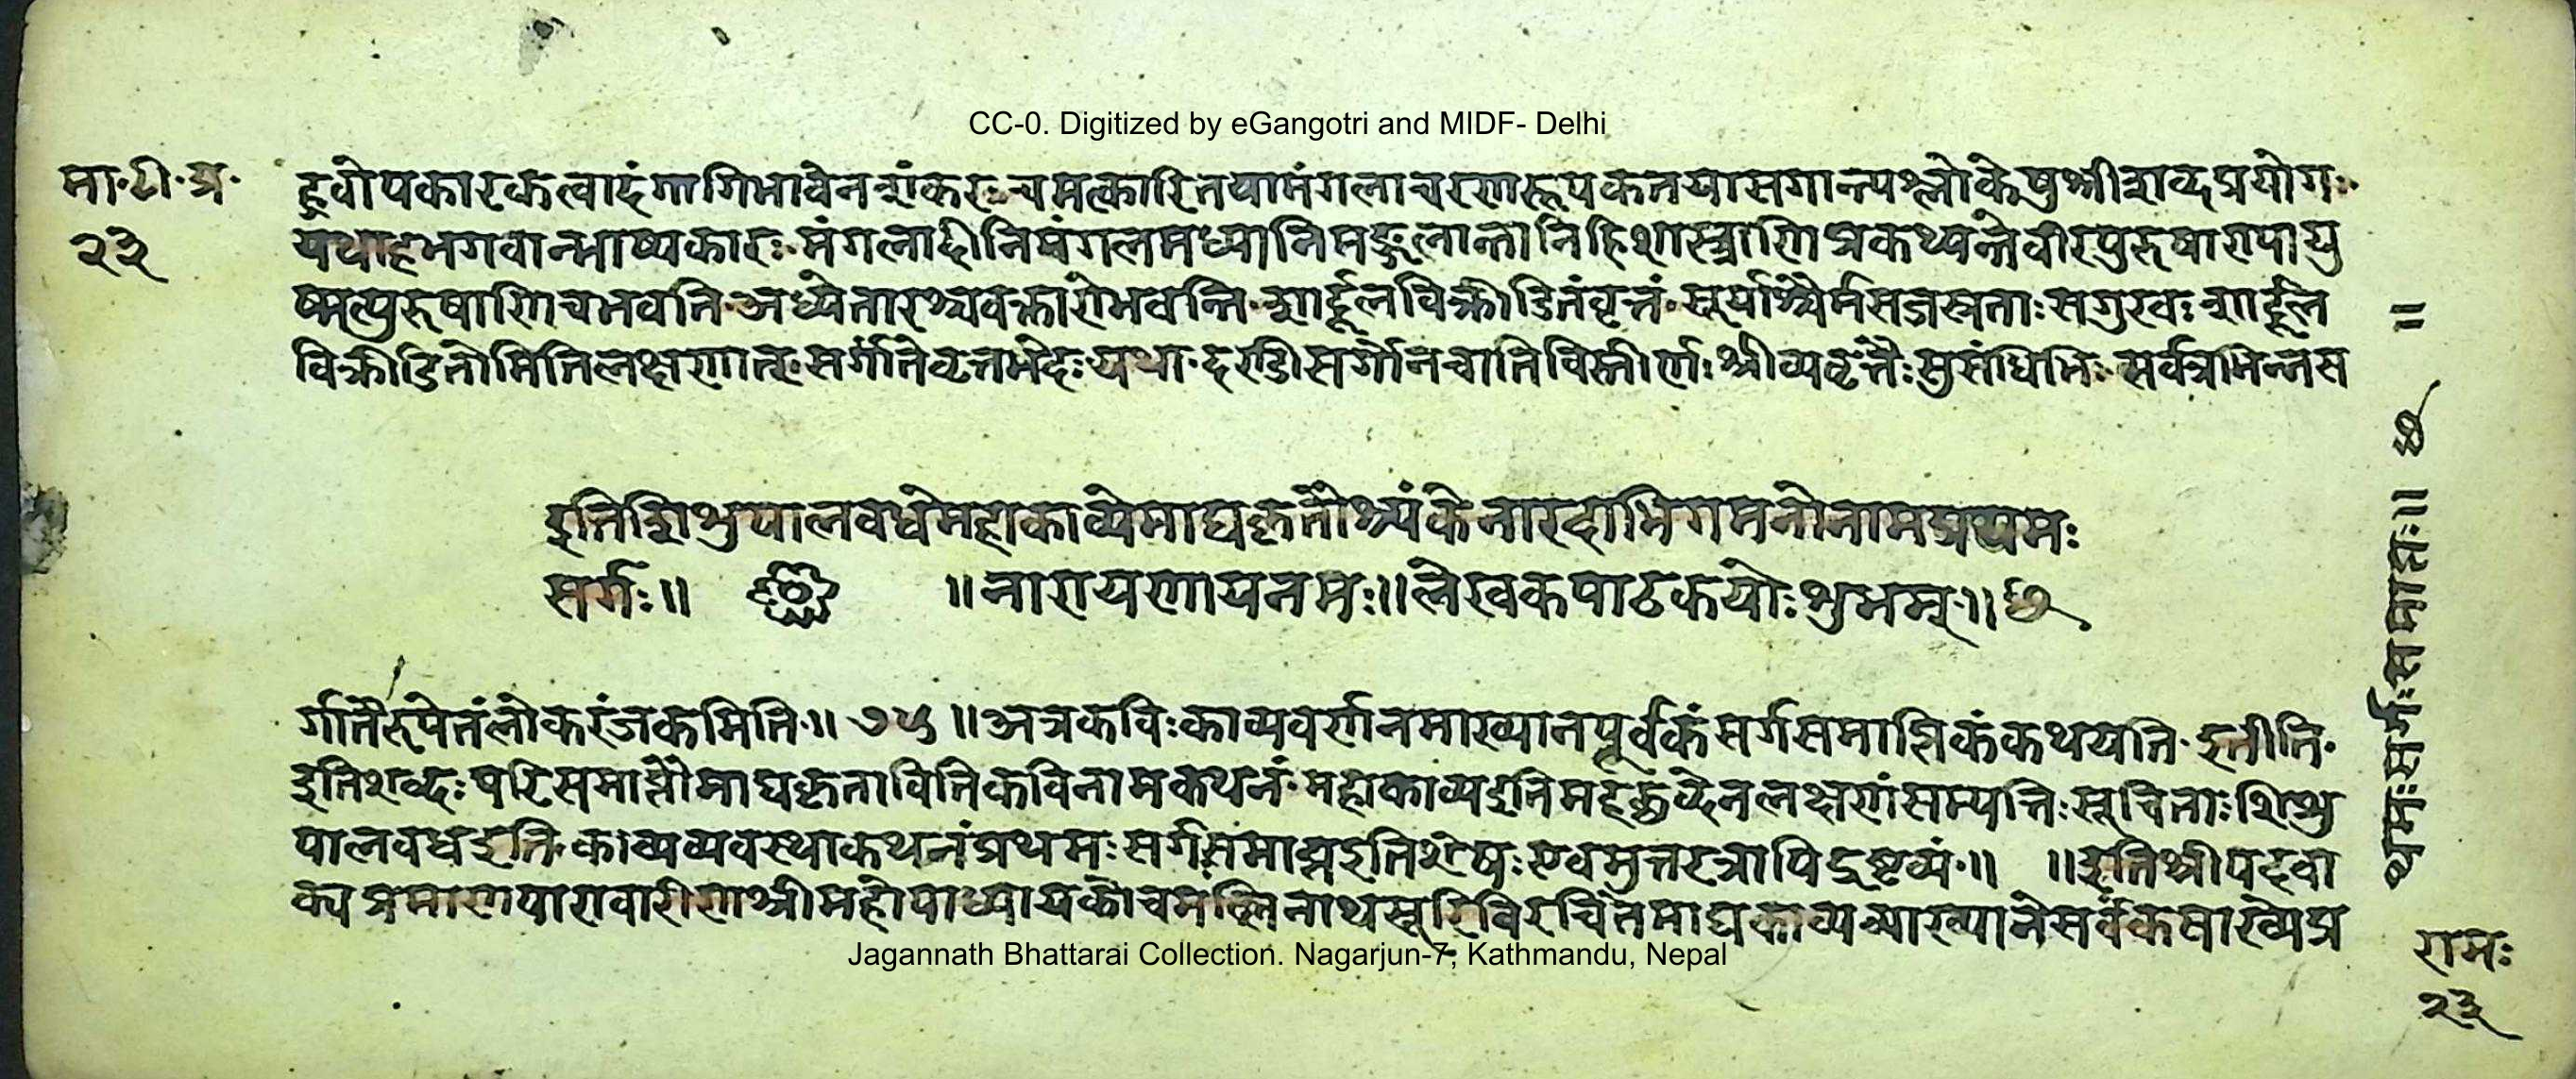 CC-0. Digitized by eGangotri and MIDF- Delhi
मा॰टी॰प्र॰
२३
ह्वोपकारकत्वादंगागिभावेन शंकरः चमत्कारितयामंगलाचरणरूपकतयासगान्त्यश्लोकेषुश्रीशब्दप्रयोगः
यथाहभगवान्भाष्यकारः मंगलादीनिमंगलमध्यानिमङ्गलान्तानिहिशास्त्राणिप्रकथ्यन्तेवीरपुरुषाणपायु
ष्मत्पुरुषाणिचभवन्ति अध्येतारश्चवक्तारोभवन्ति शार्दूलविक्रीडितंवृत्तं सूर्याश्वैर्मसजस्तताःसगुरवः शार्दूल
विक्रीडितोमितिलक्षणात् सर्गांतेवृत्तभेदः यथा दण्डीसर्गैानचातिविस्तीर्णैः श्रीव्यवृत्तैःसुसंधिभिः सर्वत्रभिन्नस
इतिशिशुपालवधेमहाकाव्येमाघकृतौश्र्यंकेनारदाभिगमनोनामप्रथमः
सर्गः॥ ॥नारायणायनमः॥लेखकपाठकयोःशुभम्॥
र्गातैरुपेतंलोकरंजकमिति॥ ७५ ॥अत्रकविःकाव्यवर्णनमाख्यानपूर्वकंसर्गसमाप्तिकंकथयति इतीति
इतिशब्दःपरिसमाप्तौमाघकृतावितिकविनामकथनं महाकाव्यइतिमहच्छब्देनलक्षणसंम्पत्तिःसूचिताःशिशु
पालवधइति काव्यव्यवस्थाकथनंप्रथमःसर्गसमाप्तइतिशेषःएवमुत्तरत्रापिद्रष्टव्यं॥ ॥इतिश्रीपदवा
क्यप्रमाणपारावारीणश्रीमहोपाध्यायकोचमल्लिनाथसूरिविरचितेमाघकाव्यव्याख्यानेसर्वंकषाख्येप्र
थमःसर्गःसमाप्तः॥ ॥
Jagannath Bhattarai Collection. Nagarjun-7, Kathmandu, Nepal
रामः
२३